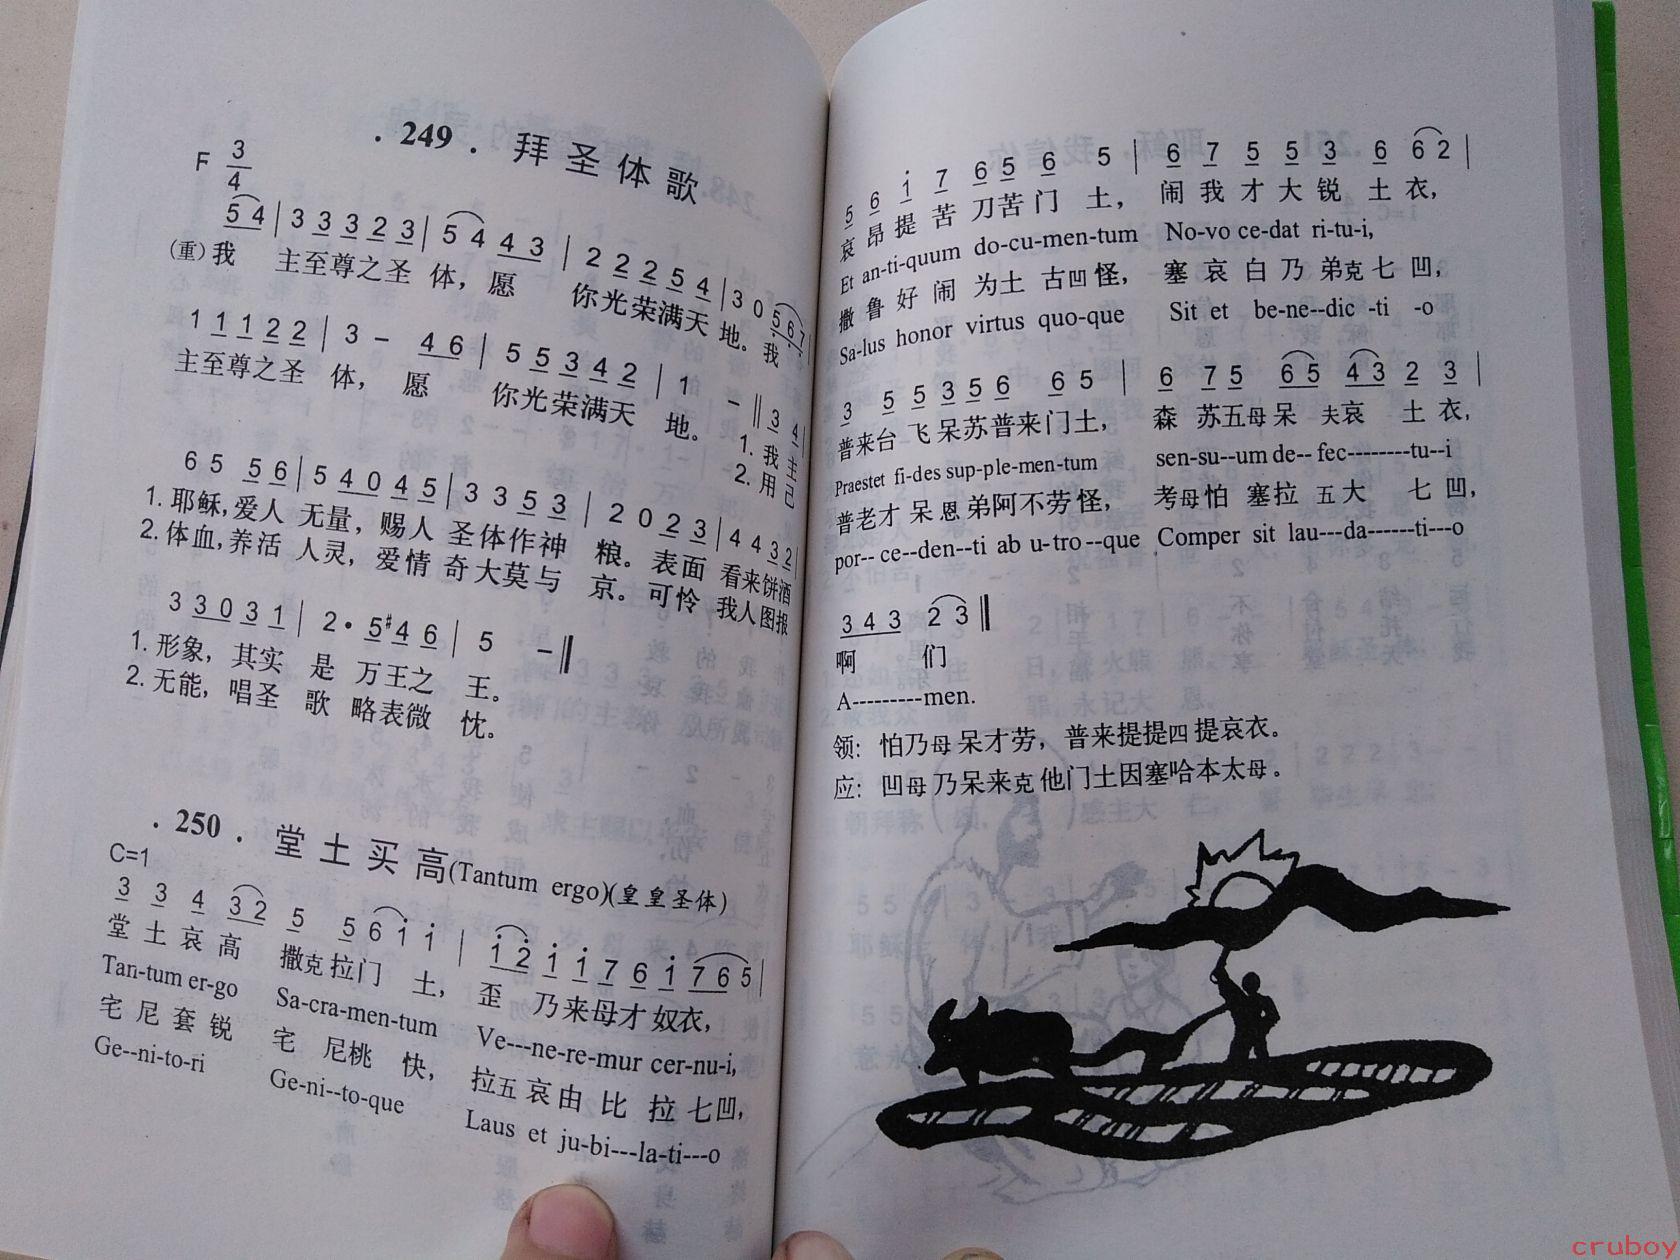 . 249 . 拜圣体歌
F 3/4
5 4 | 3 3 3 2 3 | 5 4 4 3 | 2 2 2 5 4 | 3 0 5 6 7
(重)我 主至尊之圣 体，愿 你光荣满天 地。我
1 1 1 2 2 | 3 - 4 6 | 5 5 3 4 2 | 1 - ‖ 3 4
主至尊之圣 体， 愿 你光荣满天 地。 1. 我 主
2. 用 己
6 5 5 6 | 5 4 0 4 5 | 3 3 5 3 | 2 0 2 3 | 4 4 3 2
1. 耶稣，爱人 无量，赐人 圣体作神 粮。表面 看来饼酒
2. 体血，养活 人灵，爱情 奇大莫与 京。可怜 我人图报
3 3 0 3 1 | 2 · 5 #4 6 | 5 - ‖
1. 形象，其实 是 万王之 王。
2. 无能，唱圣 歌 略表微 忱。
. 250 . 堂土买高(Tantum ergo)(皇皇圣体)
C=1
3 3 4 3 2 5 5 6 1 1 | 1 2 1 1 7 6 1 7 6 5 |
堂 土 哀 高 撒克拉门 土， 歪 乃来母才奴衣，
Tan-tum er-go Sa-cra-men-tum Ve---ne-re-mur cer-nu-i,
宅 尼 套 锐 宅 尼桃 快， 拉五哀由 比 拉 七凹，
Ge--ni-to-ri Ge-ni--to-que Laus et ju-bi---la-ti---o
5 6 1 7 6 5 6 5 | 6 7 5 5 3 6 6 2 |
哀 昂 提 苦 刀苦 门 土， 闹 我 才 大 锐 土 衣，
Et an-ti-quum do-cu-men-tum No-vo ce-dat ri-tu-i,
撒 鲁 好 闹 为土 古凹怪， 塞 哀 白 乃 弟克 七 凹，
Sa-lus honor virtus quo-que Sit et be-ne--dic -ti -o
3 5 5 3 5 6 6 5 | 6 7 5 6 5 4 3 2 3 |
普来台 飞 呆苏普来门土， 森 苏五母 呆 夫哀 土 衣，
Praestet fi-des sup-ple-men-tum sen-su--um de-- fec---------tu--i
普老才 呆 恩弟阿不劳怪， 考母怕 塞拉 五大 七 凹，
por-- ce--den--ti ab u-tro--que Comper sit lau---da-------ti---o
3 4 3 2 3 ‖
啊 们
A---------men.
领：怕乃母呆才劳，普来提提四提哀衣。
应：凹母乃呆来克他门土因塞哈本太母。
cruboy